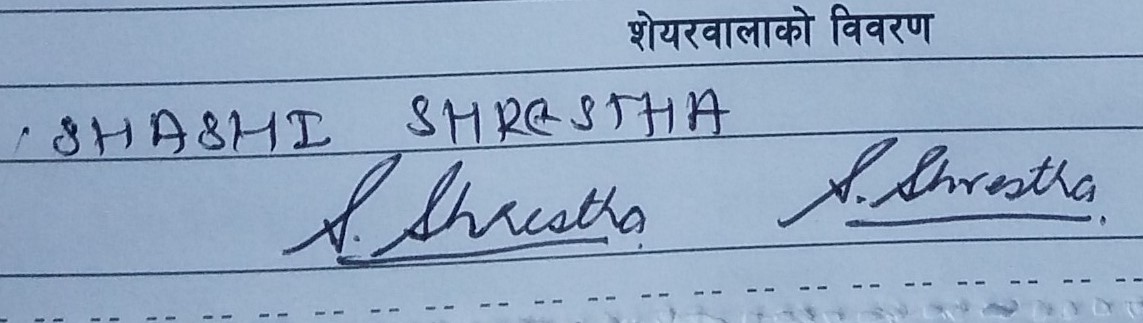 शेयरवालाको विवरण
SHASHI SHRESTHA
S. Shrestha S. Shrestha